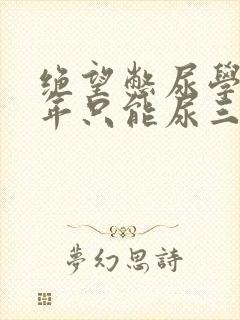 绝望憋尿學
年只能尿三
夢幻思詩